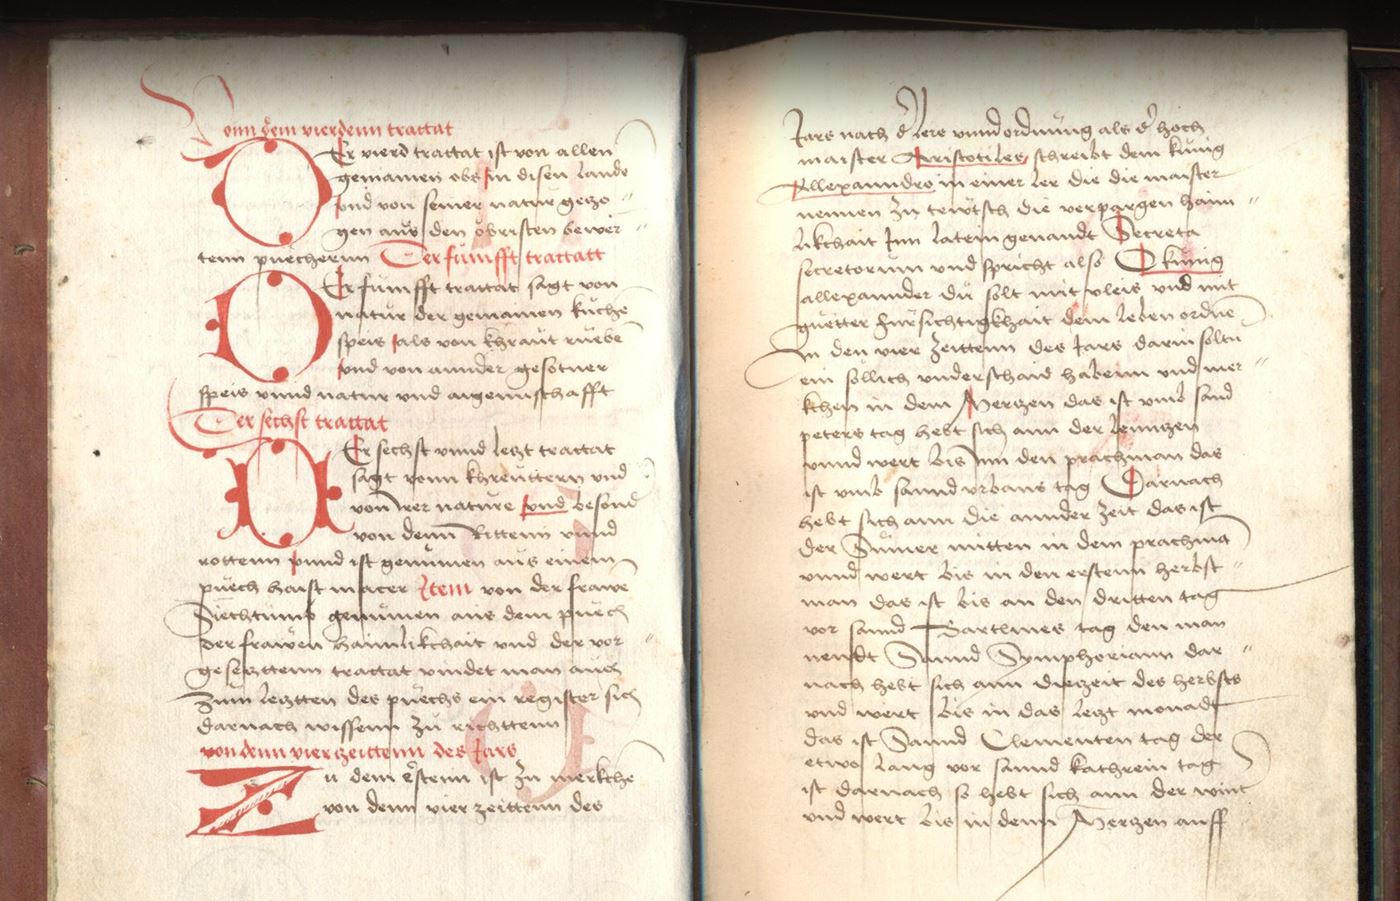 Vonn dem vierdenn trattat
Er vierd trattat ist von allen
gemainen obs in disen lande
vnd von seiner natur gezo
gen aus den obristen bewer
tenn puecherrnn Der fumfft trattatt
Er fumfft trattat sagt von
natur der gemainen kuche
speis als von khraut rueben
vnd von annder gesotner
speis vnnd natur vnd aigennschafft
Der sechst trattat
Er sechst vnnd letzt trattat
sagt vonn khreuttern vnd
von irer nature vnd besond
von denn Rittenn vnnd
rottenn vnnd ist genumen aus einem
puech haist macer Item von der frawe
Siechtumb genumen aus dem puech
der frawen haimlikchait vnd der vor
gesetzttenn trattat vindet man auch
Zum letzten des puechs ein register sich
darnach wissenn zu richttenn
von denn vier zeittenn des Jars
Zu dem erstenn ist zu merkche
von denn vier zeittenn des
Jars nach der lere vnnd ordnung als der hoch
maister Aristotiles schreibt dem kunig
Allexanndro in einer ler die die maister
nennen zu tewtsch die verpargen haim
likchait Inn latein genandt Secreta
secretorum vnd spricht also O kunig
allexannder du solt mit vleis vnd mit
guetter fursichtigkhait dem leben ordne
In den vier zeittenn des Jars darin soltu
ein sollich vnderschaid habenn vnd mer
kchen in dem Mertzen das ist vmb sand
peters tag hebt sich ann der lenntzen
vnnd wert bis inn den prachman das
ist vmb sannd vrbans tag Darnach
hebt sich ann die annder zeit das ist
der Sumer mitten in dem prachma
vnnd wert bis in den erstenn herbst
man das ist bis an den dritten tag
vor sannd Bartlmes tag den man
nendt Sannd Symphoriann dar
nach hebt sich ann die zeit des herbsts
vnd wert bis in das letzt monadt
das ist Sannd Clementen tag der
etwo lang vor sannd kathrein tag
ist darnach so hebt sich ann der wint
vnd wert bis in denn Mertzen auff